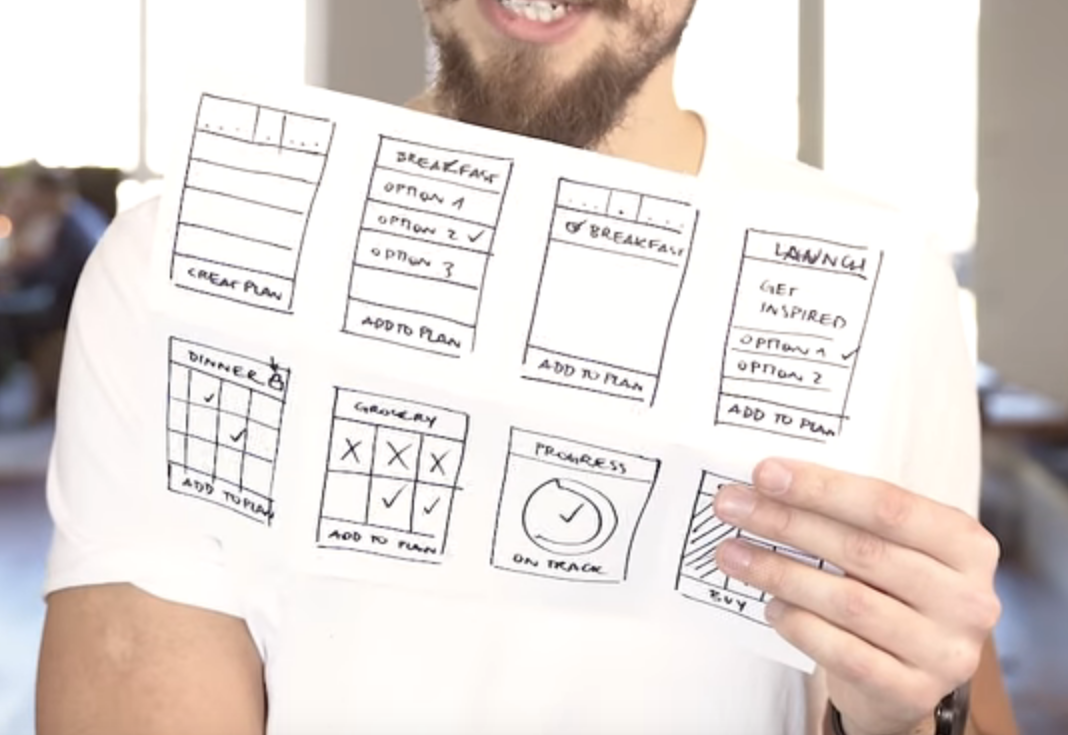 CREAT PLAN
BREAKFAST
OPTION 1
OPTION 2 ✓
OPTION 3
ADD TO PLAN
BREAKFAST
ADD TO PLAN
LAUNCH
GET
INSPIRED
OPTION 1 ✓
OPTION 2
ADD TO PLAN
DINNER
ADD TO PLAN
GROCERY
X X X
✓ ✓
ADD TO PLAN
PROGRESS
ON TRACK
BUY